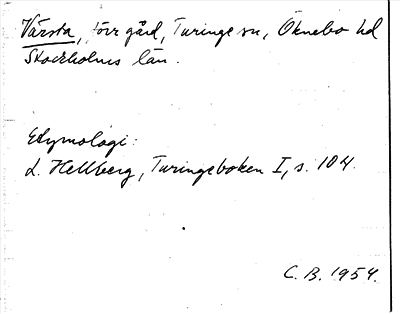 Vårsta, förr gård, Turinge sn, Öknebo hd
Stockholms län.
Etymologi:
L. Hellberg, Turingeboken I, s. 104.
C. B. 1954.